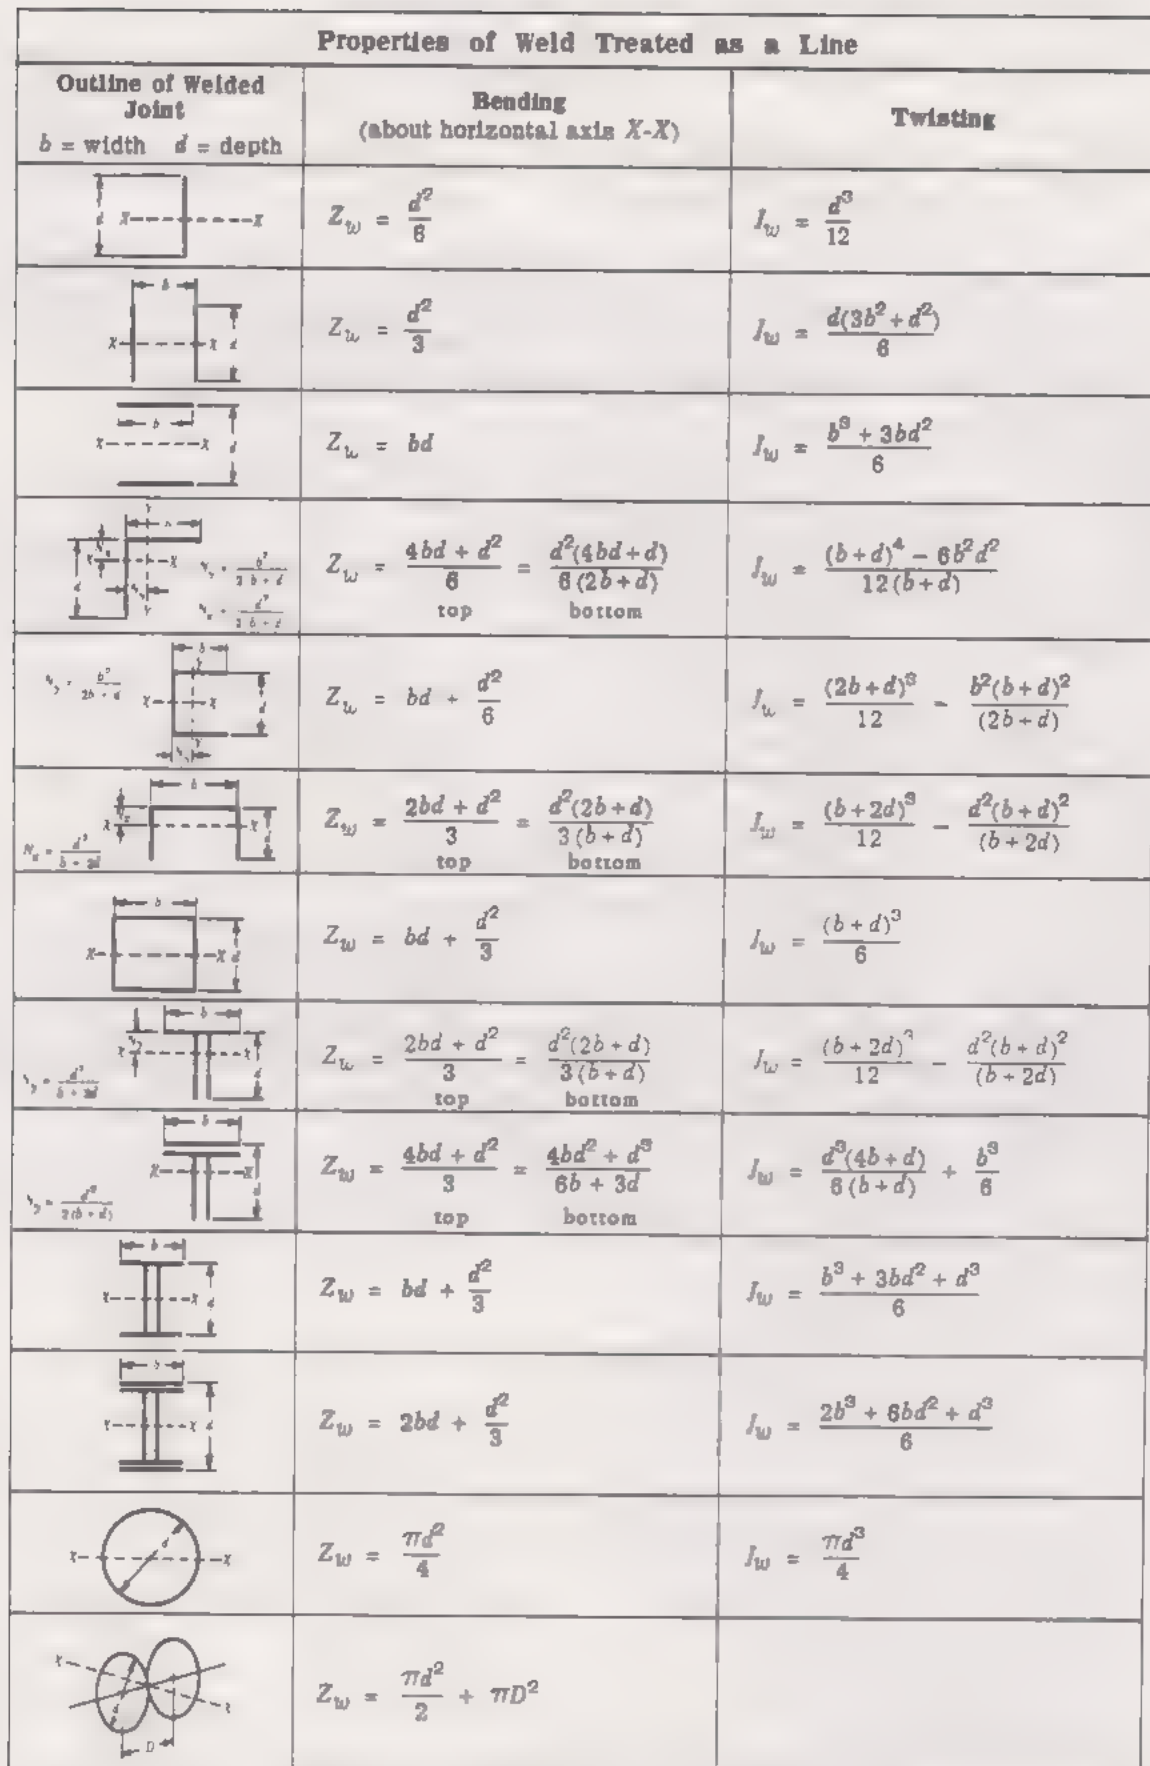 Properties of Weld Treated as a Line
Outline of Welded Joint
b = width d = depth
Bending
(about horizontal axis X-X)
Twisting
d X X
Z_w = d²/6
J_w = d³/12
b X X d
Z_w = d²/3
J_w = d(3b² + d²)/6
b X X d
Z_w = bd
J_w = (b³ + 3bd²)/6
X X d
N_y = b²/2(b + d)
N_x = d²/2(b + d)
Z_w = (4bd + d²)/6 = d²(4bd + d)/6(2b + d)
top bottom
J_w = ((b + d)⁴ - 6b²d²)/12(b + d)
N_y = b²/(2b + d)
b X X d
Z_w = bd + d²/6
J_w = (2b + d)³/12 - b²(b + d)²/(2b + d)
b X X d
N_x = d²/(b + 2d)
Z_w = (2bd + d²)/3 = d²(2b + d)/3(b + d)
top bottom
J_w = (b + 2d)³/12 - d²(b + d)²/(b + 2d)
b X X d
Z_w = bd + d²/3
J_w = (b + d)³/6
b X X d
N_y = d²/(b + 2d)
Z_w = (2bd + d²)/3 = d²(2b + d)/3(b + d)
top bottom
J_w = (b + 2d)³/12 - d²(b + d)²/(b + 2d)
b X X d
N_y = d²/2(b + d)
Z_w = (4bd + d²)/3 = (4bd² + d³)/(6b + 3d)
top bottom
J_w = d³(4b + d)/6(b + d) + b³/6
b X X d
Z_w = bd + d²/3
J_w = (b³ + 3bd² + d³)/6
b X X d
Z_w = 2bd + d²/3
J_w = (2b³ + 6bd² + d³)/6
X d X
Z_w = πd²/4
J_w = πd³/4
X d X D
Z_w = πd²/2 + πD²